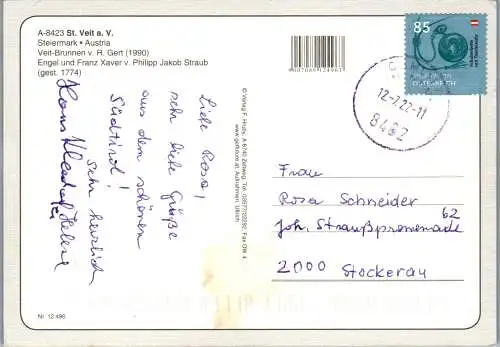 A-8423 St. Veit a. V.
Steiermark • Austria
Veit-Brunnen v. R. Gert (1990)
Engel und Franz Xaver v. Philipp Jakob Straub
(gest. 1774)
85
12-7.22-11
8482
Liebe Rosa!
sehr liebe Grüße
aus dem schönen
Südtirol!
Sehr herzlich
Hans
Helene
© Verlag F. Hruby, A-8740 Zeltweg, Tel. 03577/22292, Fax DW 4
Frau
Rosa Schneider
Joh. Straußpromenade 62
2000 Stockerau
Nr. 12 496